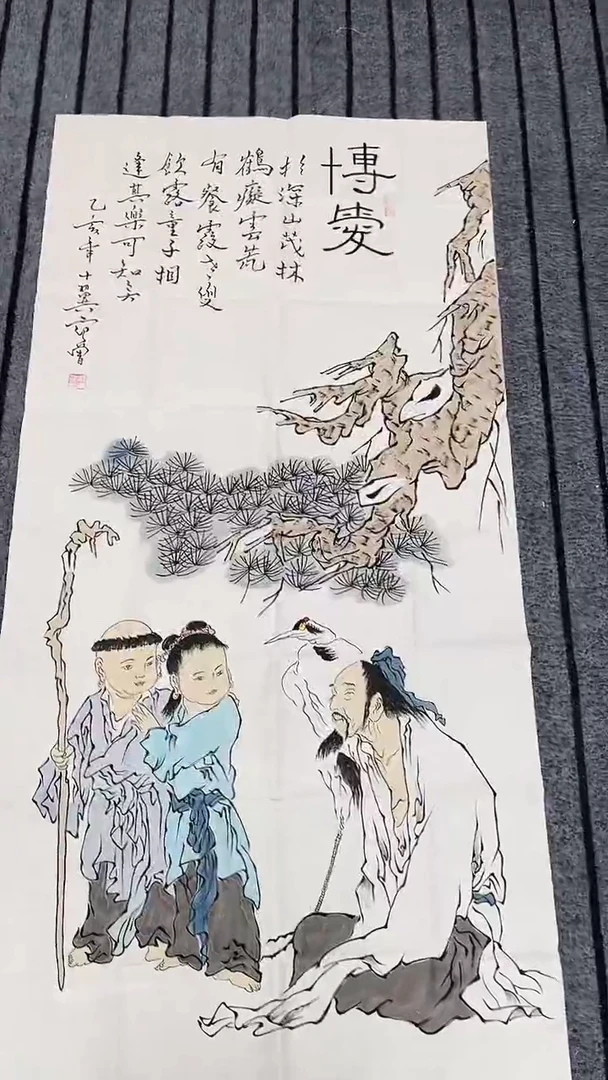 博愛
於深山茂林
鶴癡雲荒
有餐霞之叟
飲露童子相
逢其樂可知矣
乙亥年十翼范曾